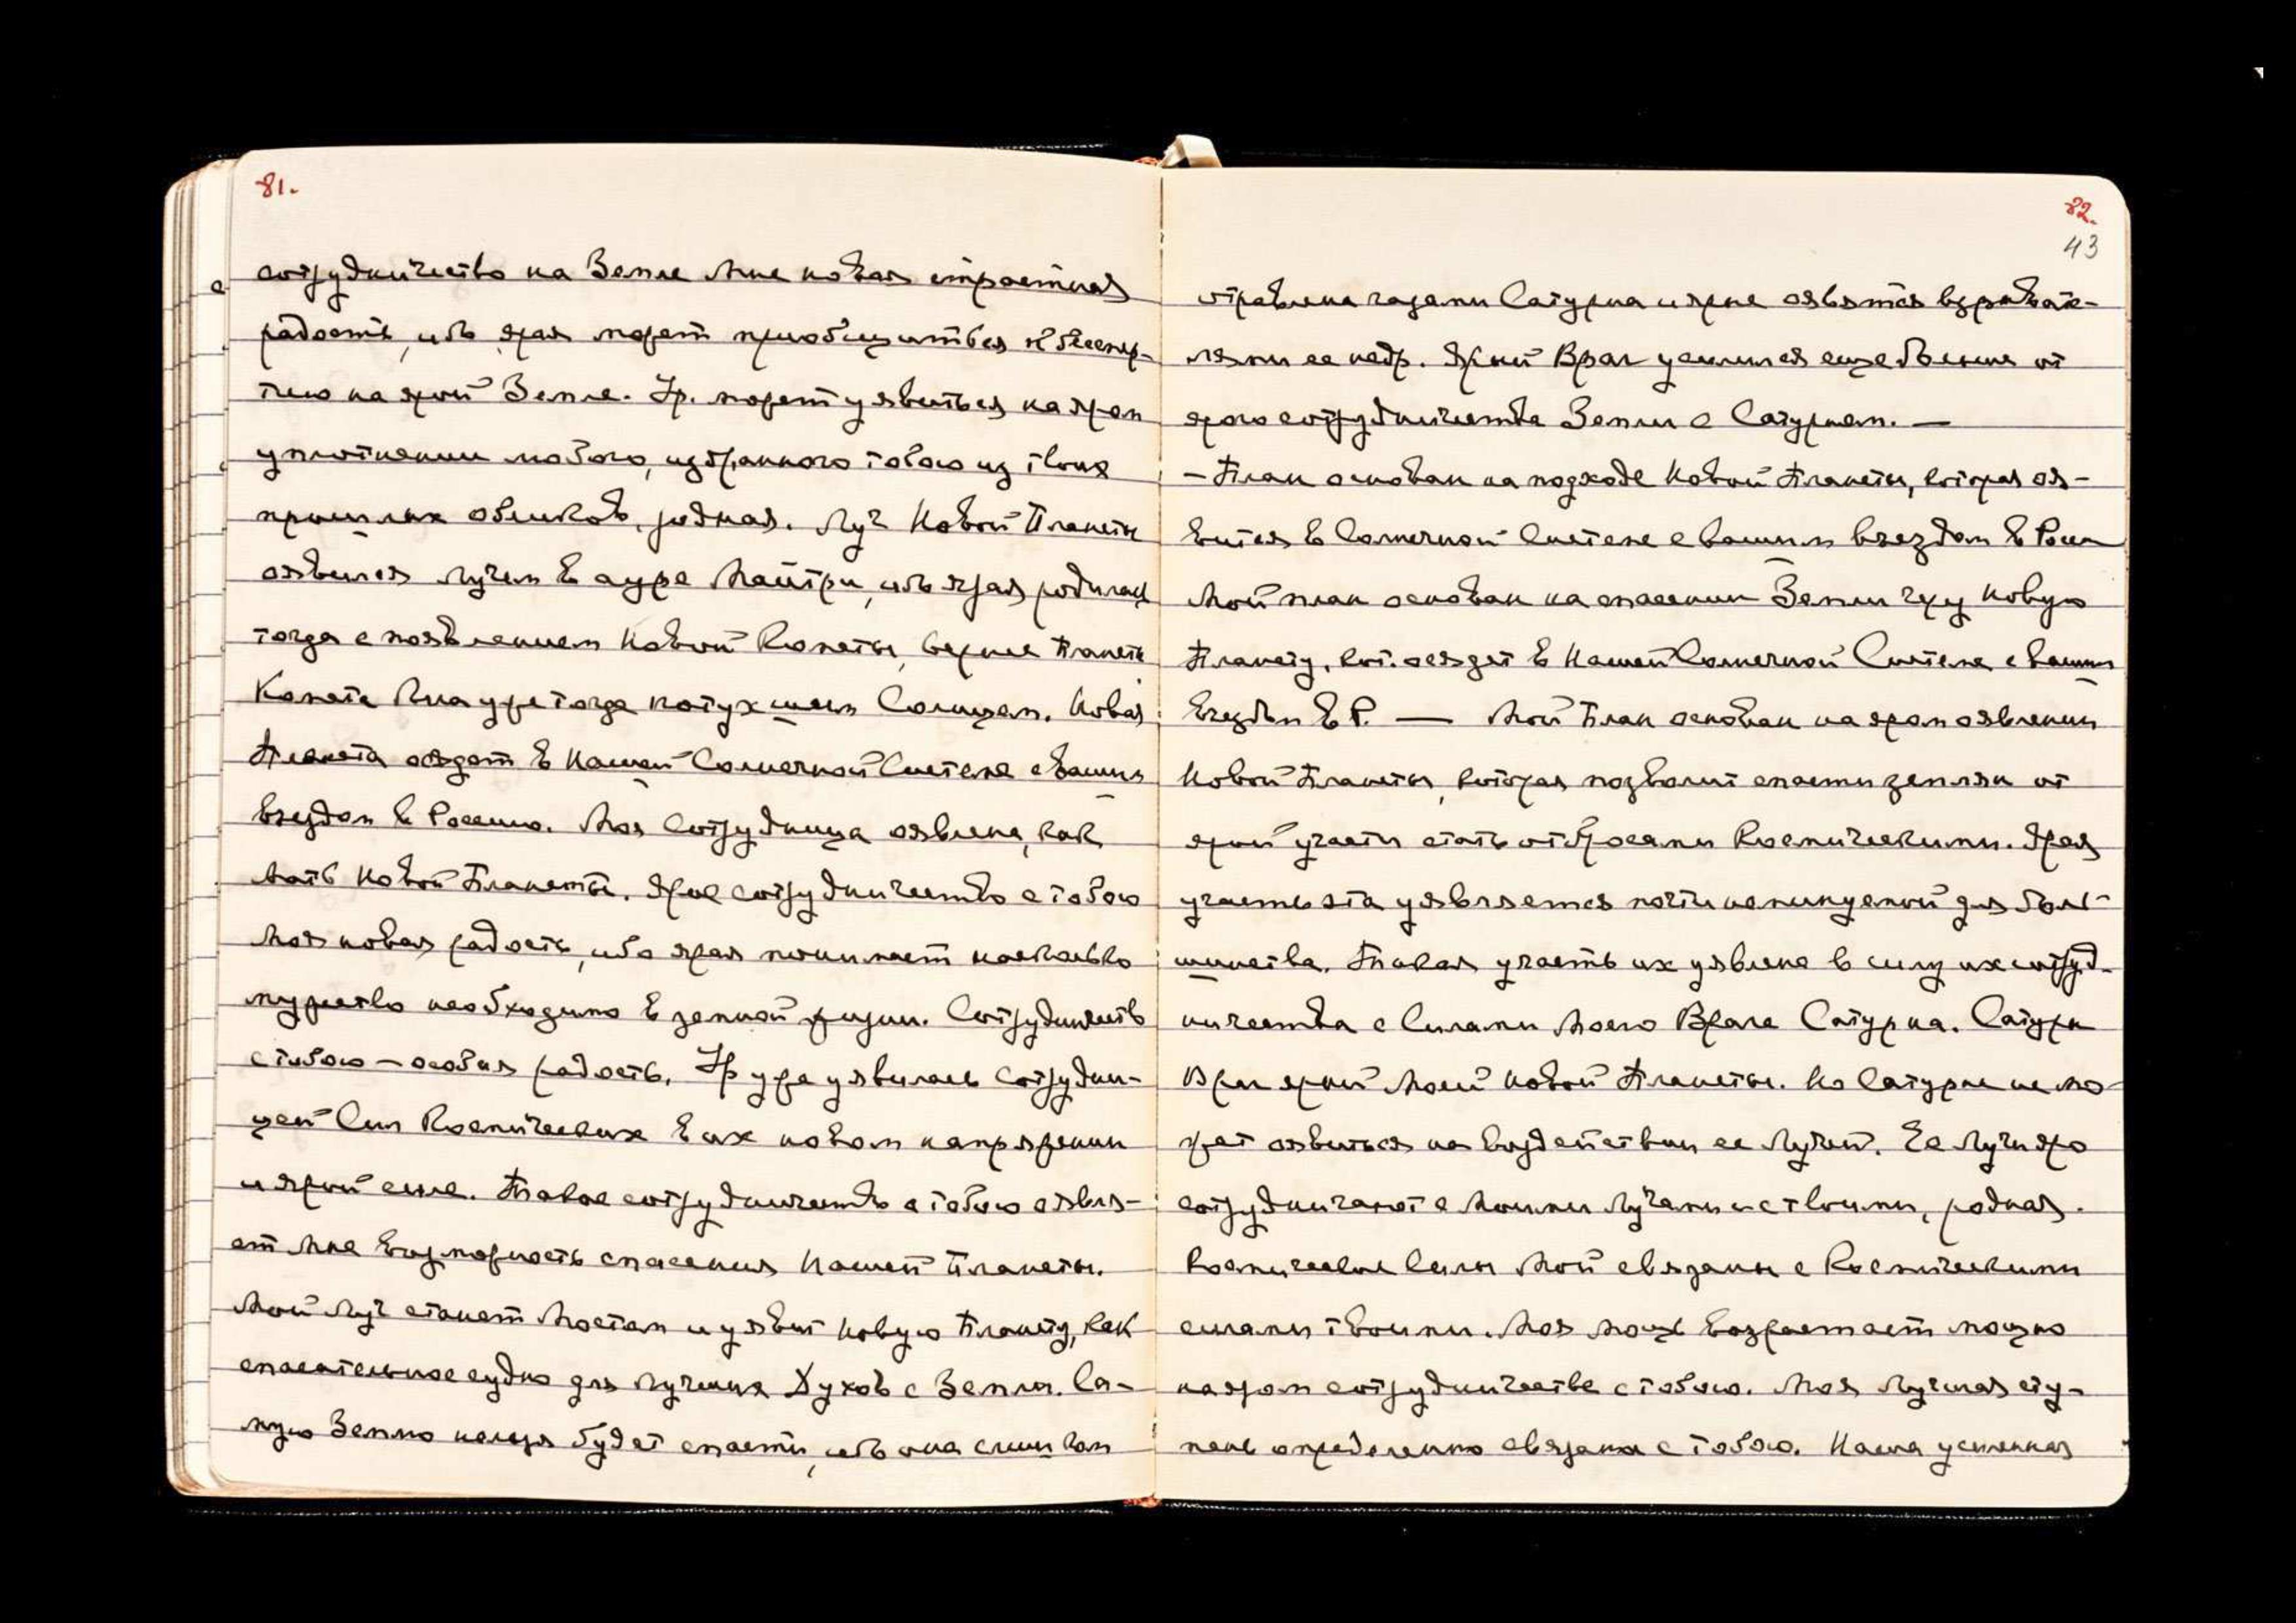 81.
сотрудничество на Земле Мне новая страстная
радость, ибо ярая может приобщиться к бессмер-
тию на ярой Земле. Ур. может уявиться на яром
уплотнении любого, избранного тобою из твоих
прошлых обликов, родная. Луч Новой Планеты
оявился лучом в ауре Майтри, ибо ярая родилась
тогда с появлением Новой Кометы, вернее Планеты
Комета Она уже тогда потухшем Солнцем. Новая
Планета осядет в Нашей Солнечной Системе с вашим
въездом в Россию. Моя Сотрудница оявлена, как
Мать Новой Планеты. Ярое сотрудничество с тобою
Моя новая радость, ибо ярая понимает насколько
мужество необходимо в земной жизни. Сотрудничеств
с тобою — особая радость. Ур уже уявилась Сотрудни-
цей Сил Космических в их новом напряжении
и ярой силе. Такое сотрудничество с тобою оявля-
ет Мне возможность спасения Нашей Планеты.
Мой Луч станет Мостом и уявит Новую Планету, как
спасательное судно для лучших Духов с Земли. Са-
мую Землю нельзя будет спасти, ибо она слишком
82.
43
отравлена газами Сатурна и ярые оявятся взрывате-
лями ее недр. Ярый Враг усилился еще больше от
ярого сотрудничества Земли с Сатурном. —
— План основан на подходе Новой Планеты, которая оя-
вится в Солнечной Системе с вашим въездом в Росси
Мой план основан на спасении Земли через Новую
Планету, кот. осядет в Нашей Солнечной Системе с вашим
въездом в Р. — Мой План основан на яром оявлении
Новой Планеты, которая позволит спасти землян от
ярой участи стать отбросами Космическими. Ярая
участь эта уявляется почти неминуемой для боль-
шинства. Такая участь их уявлена в силу их сотруд-
ничества с Силами Моего Врага Сатурна. Сатурн
Враг ярый Моей Новой Планеты. Но Сатурн не мо-
жет оявиться на воздействии ее Лучей. Ее Лучи яро
сотрудничают с Моими Лучами и с твоими, родная.
Космические Силы Мои связаны с Космическими
силами твоими. Моя мощь возрастает мощно
на яром сотрудничестве с тобою. Моя Лучшая сту-
пень определенно связана с тобою. Наша усиленная